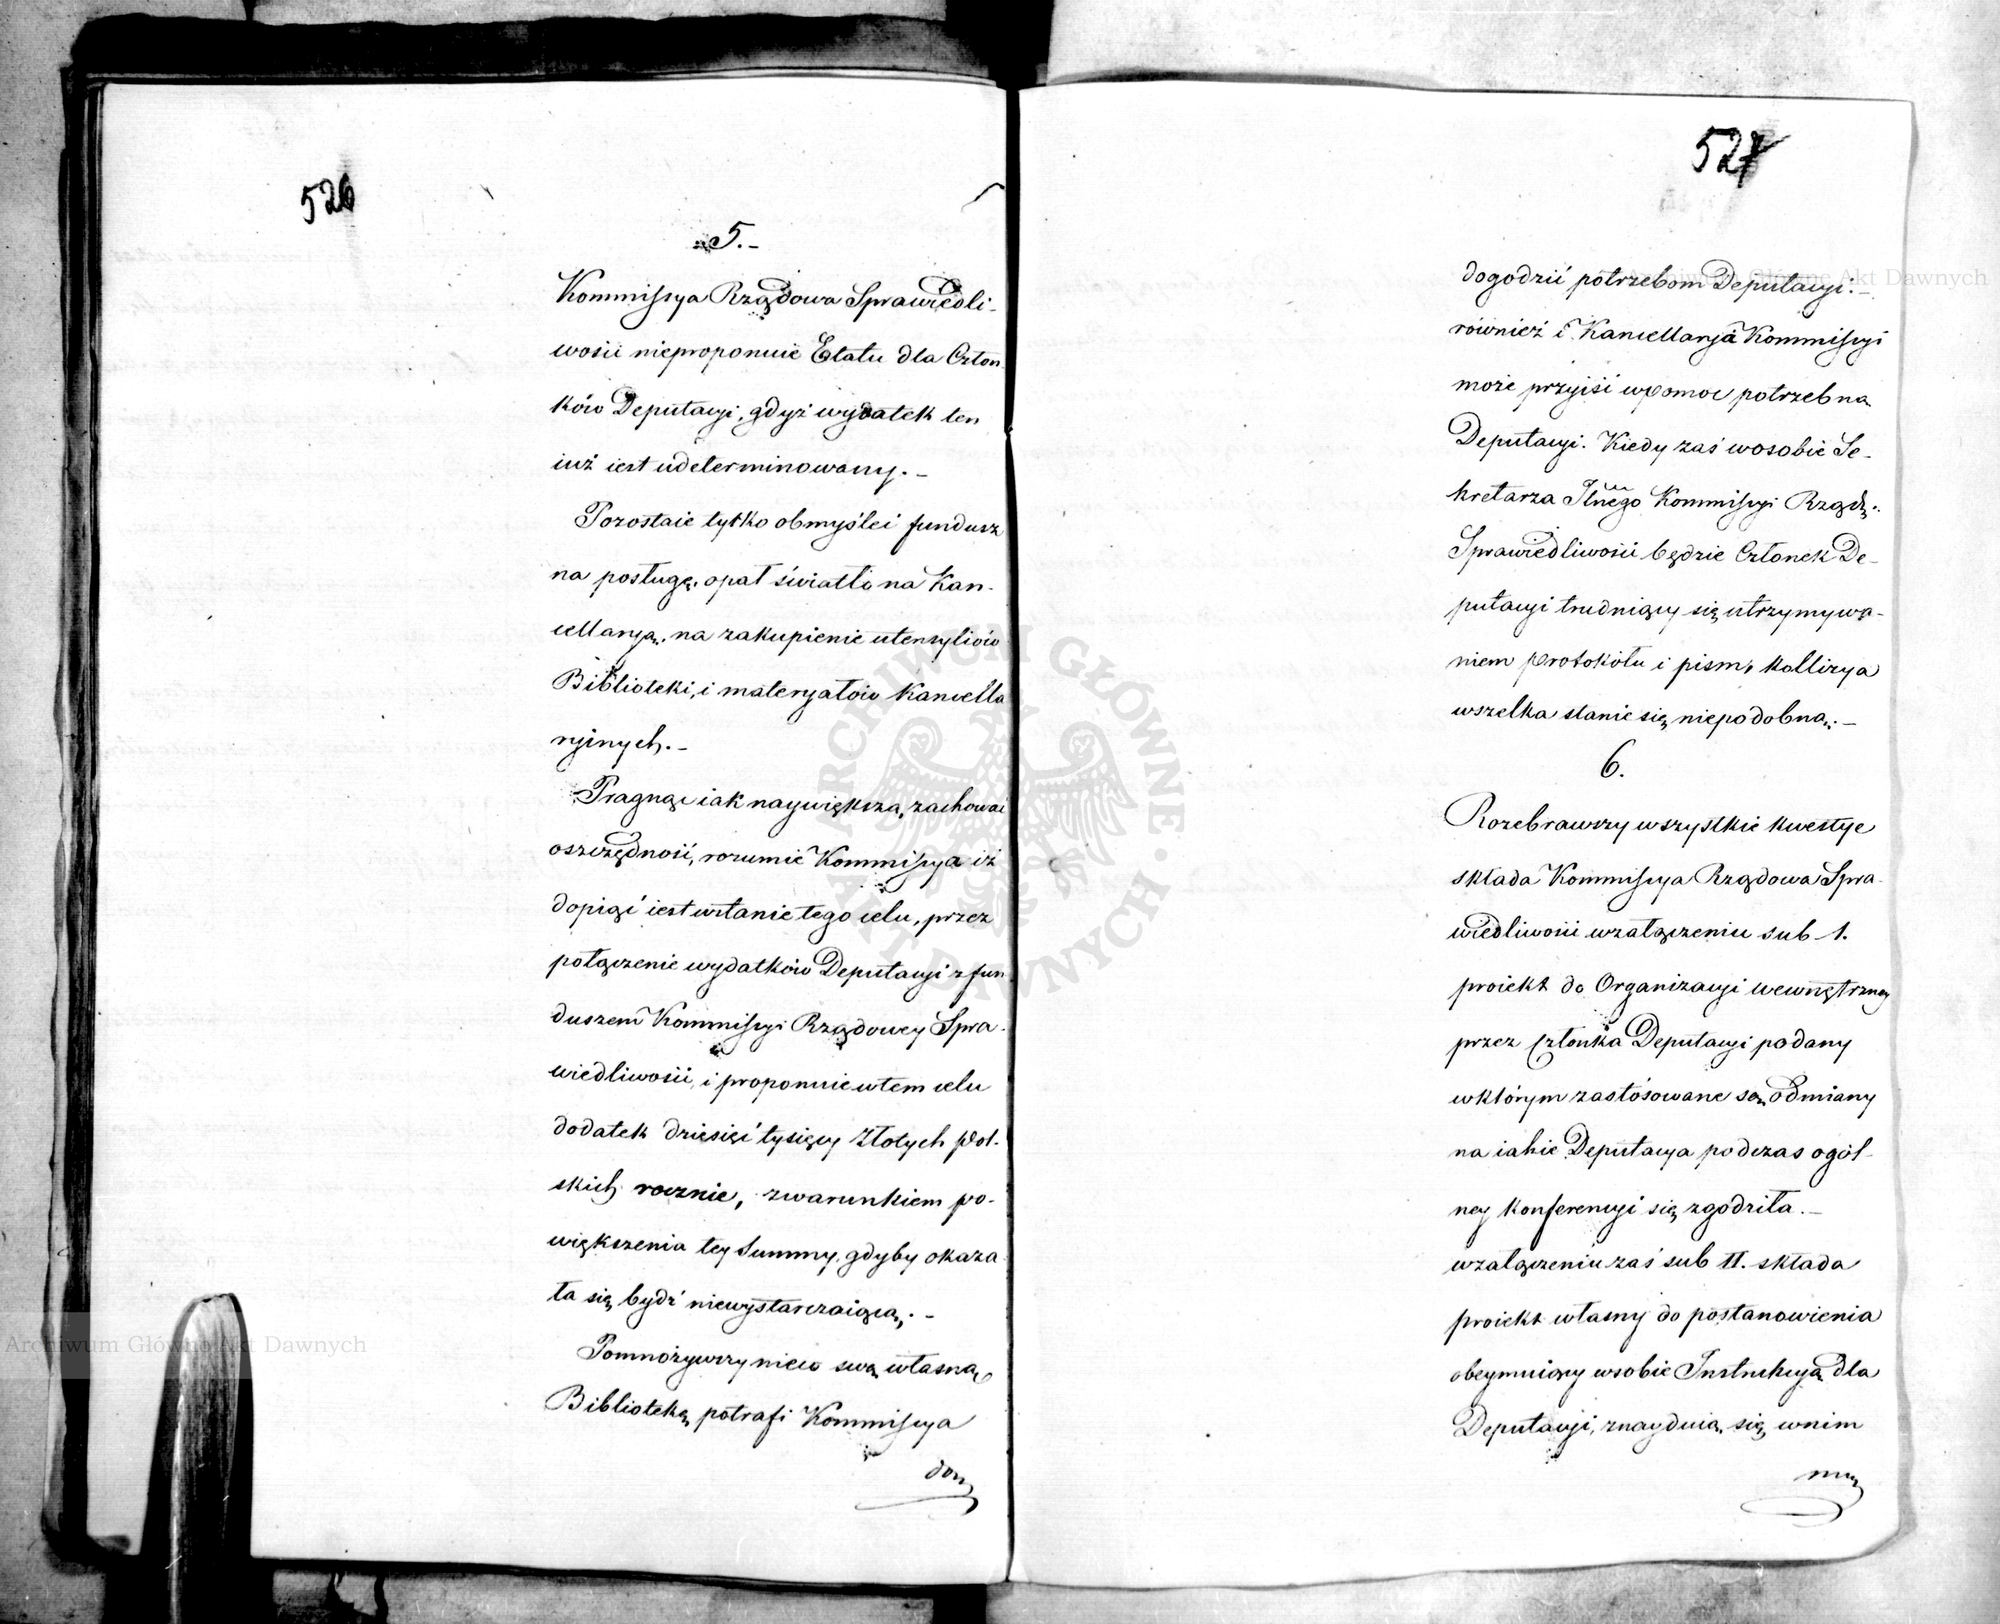 526
5.-
Kommissya Rządowa Sprawiedli-
wości nieproponuie Etatu dla Człon
ków Deputacyi, gdyż wydatek ten
iuż iest udeterminowany.-
Pozostaie tylko obmyśleć fundusz
na posługę, opał światło na Kan-
cellaryą, na zakupienie utensyliów
Biblioteki, i materyałów Kancella
ryinych.-
Pragnąc iak naywiększą, zachować
oszczędność, rozumie Kommissya iż
dopiąć iest wstanie tego celu, przez
połączenie wydatków Deputacyi z fun
duszem Kommissyi Rządowey Spra-
wiedliwości, i proponuie wtem celu
dodatek dziesięć tysięcy złotych pol-
skich rocznie, zwarunkiem po-
większenia tey Summy, gdyby okaza
ła się bydź niewystarczaiącą.-
Pomnożywszy nieco swą własną
Bibliotekę, potrafi Kommissya
dog
527
dogodzić potrzebom Deputacyi.-
również i Kancellarya Kommissyi
może przyiść wpomoc potrzebną
Deputacyi. Kiedy zaś wosobie Se-
kretarza Jlnego Kommissyi Rządz.
Sprawiedliwości będzie Członek De-
putacyi trudniący się utrzymywa-
niem protokółu i pism, kollizya
wszelka stanie się niepodobną.-
6.
Rozebrawszy wszystkie kwestye
składa Kommissya Rządowa Spra-
wiedliwości wzałączeniu sub 1.
proiekt do Organizacyi wewnętrzney
przez Członka Deputacyi podany
wktórym zastósowane są odmiany
na iakie Deputacya podczas ogól-
ney konferencyi się zgodziła.-
wzałączeniu zaś sub II. składa
proiekt własny do postanowienia
obeymuiący wsobie Instrukcyą dla
Deputacyi, znayduią się wnim
Archiwum Główne Akt Dawnych
Archiwum Główne Akt Dawnych
ARCHIWUM GŁÓWNE AKT DAWNYCH